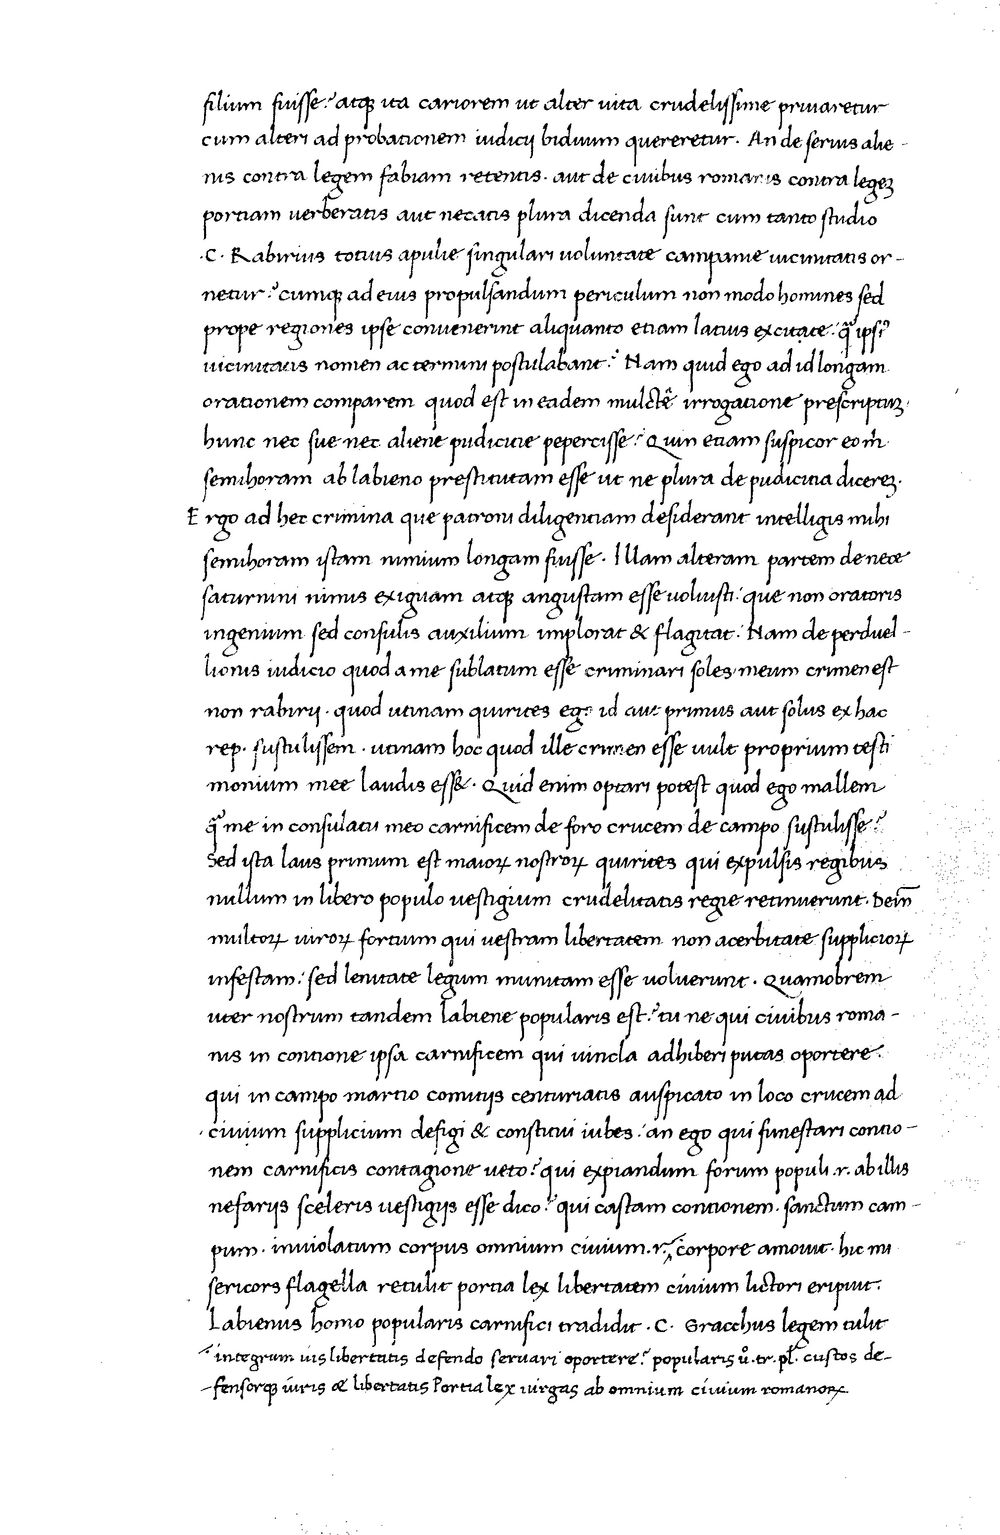 filium fuisse? atq; ita cariorem ut alter uita crudelissime priuaretur
cum alteri ad probationem iudicij biduum quereretur. An de seruis alie-
nis contra legem fabiam retentis. aut de ciuibus romanis contra legeʒ
portiam uerberatis aut necatis plura dicenda sunt cum tanto studio
.C. Rabirius totius apulie singulari uoluntate campanie uicinitatis or-
netur? cumq; ad eius propulsandum periculum non modo homines sed
prope regiones ipse conuenerint aliquanto etiam latius excitate: q̃ ipsi⁹
uicinitatis nomen ac termini postulabant? Nam quid ego ad id longam
orationem comparem quod est in eadem mulctẽ irrogatione prescriptuʒ.
hunc nec sue nec aliene pudicitie pepercisse? Quin etiam suspicor eo m̃
semihoram ab labieno prestitutam esse ut ne plura de pudicitia dicereʒ.
Ergo ad hec crimina que patroni diligentiam desiderant intelligis mihi
semihoram istam nimium longam fuisse. Illam alteram partem de nece
saturnini nimis exiguam atq; angustam esse uoluisti: que non oratoris
ingenium sed consulis auxilium implorat & flagitat. Nam de perduel-
lionis iudicio quod a me sublatum esse criminari soles meum crimen est
non rabirij. quod utinam quirites ego id aut primus aut solus ex hac
rep. sustulissem. utinam hoc quod ille crimen esse uult proprium testi
monium mee laudis ess&. Quid enim optari potest quod ego mallem
q̃ me in consulatu meo carnificem de foro crucem de campo sustulisse?
Sed ista laus primum est maioꝝ nostroꝝ quirites qui expulsis regibus
nullum in libero populo uestigium crudelitatis regie retinuerunt. Dein̄
multoꝝ uiroꝝ fortium qui uestram libertatem non acerbitate supplicioꝝ
infestam: sed lenitate legum munitam esse uoluerunt. Quamobrem
uter nostrum tandem labiene popularis est? tu ne qui ciuibus roma-
nis in contione ipsa carnificem qui uincla adhiberi putas oportere?
qui in campo martio comitijs centuriatis auspicato in loco crucem ad
ciuium supplicium defigi & constitui iubes: an ego qui funestari contio-
nem carnificis contagione ueto? qui expiandum forum populi .r. ab illis
nefarijs sceleris uestigijs esse dico? qui castam contionem. sanctum cam-
pum. inuiolatum corpus omnium ciuium .r. corpore amouit. hic mi
sericors flagella retulit portia lex libertatem ciuium lictori eripuit.
Labienus homo popularis carnifici tradidit .C. Gracchus legem tulit
integrum uis libertatis defendo seruari oportere? popularis ů. tr. pl. custos de-
fensorq; iuris & libertatis Portia lex uirgas ab omnium ciuium romanoꝝ